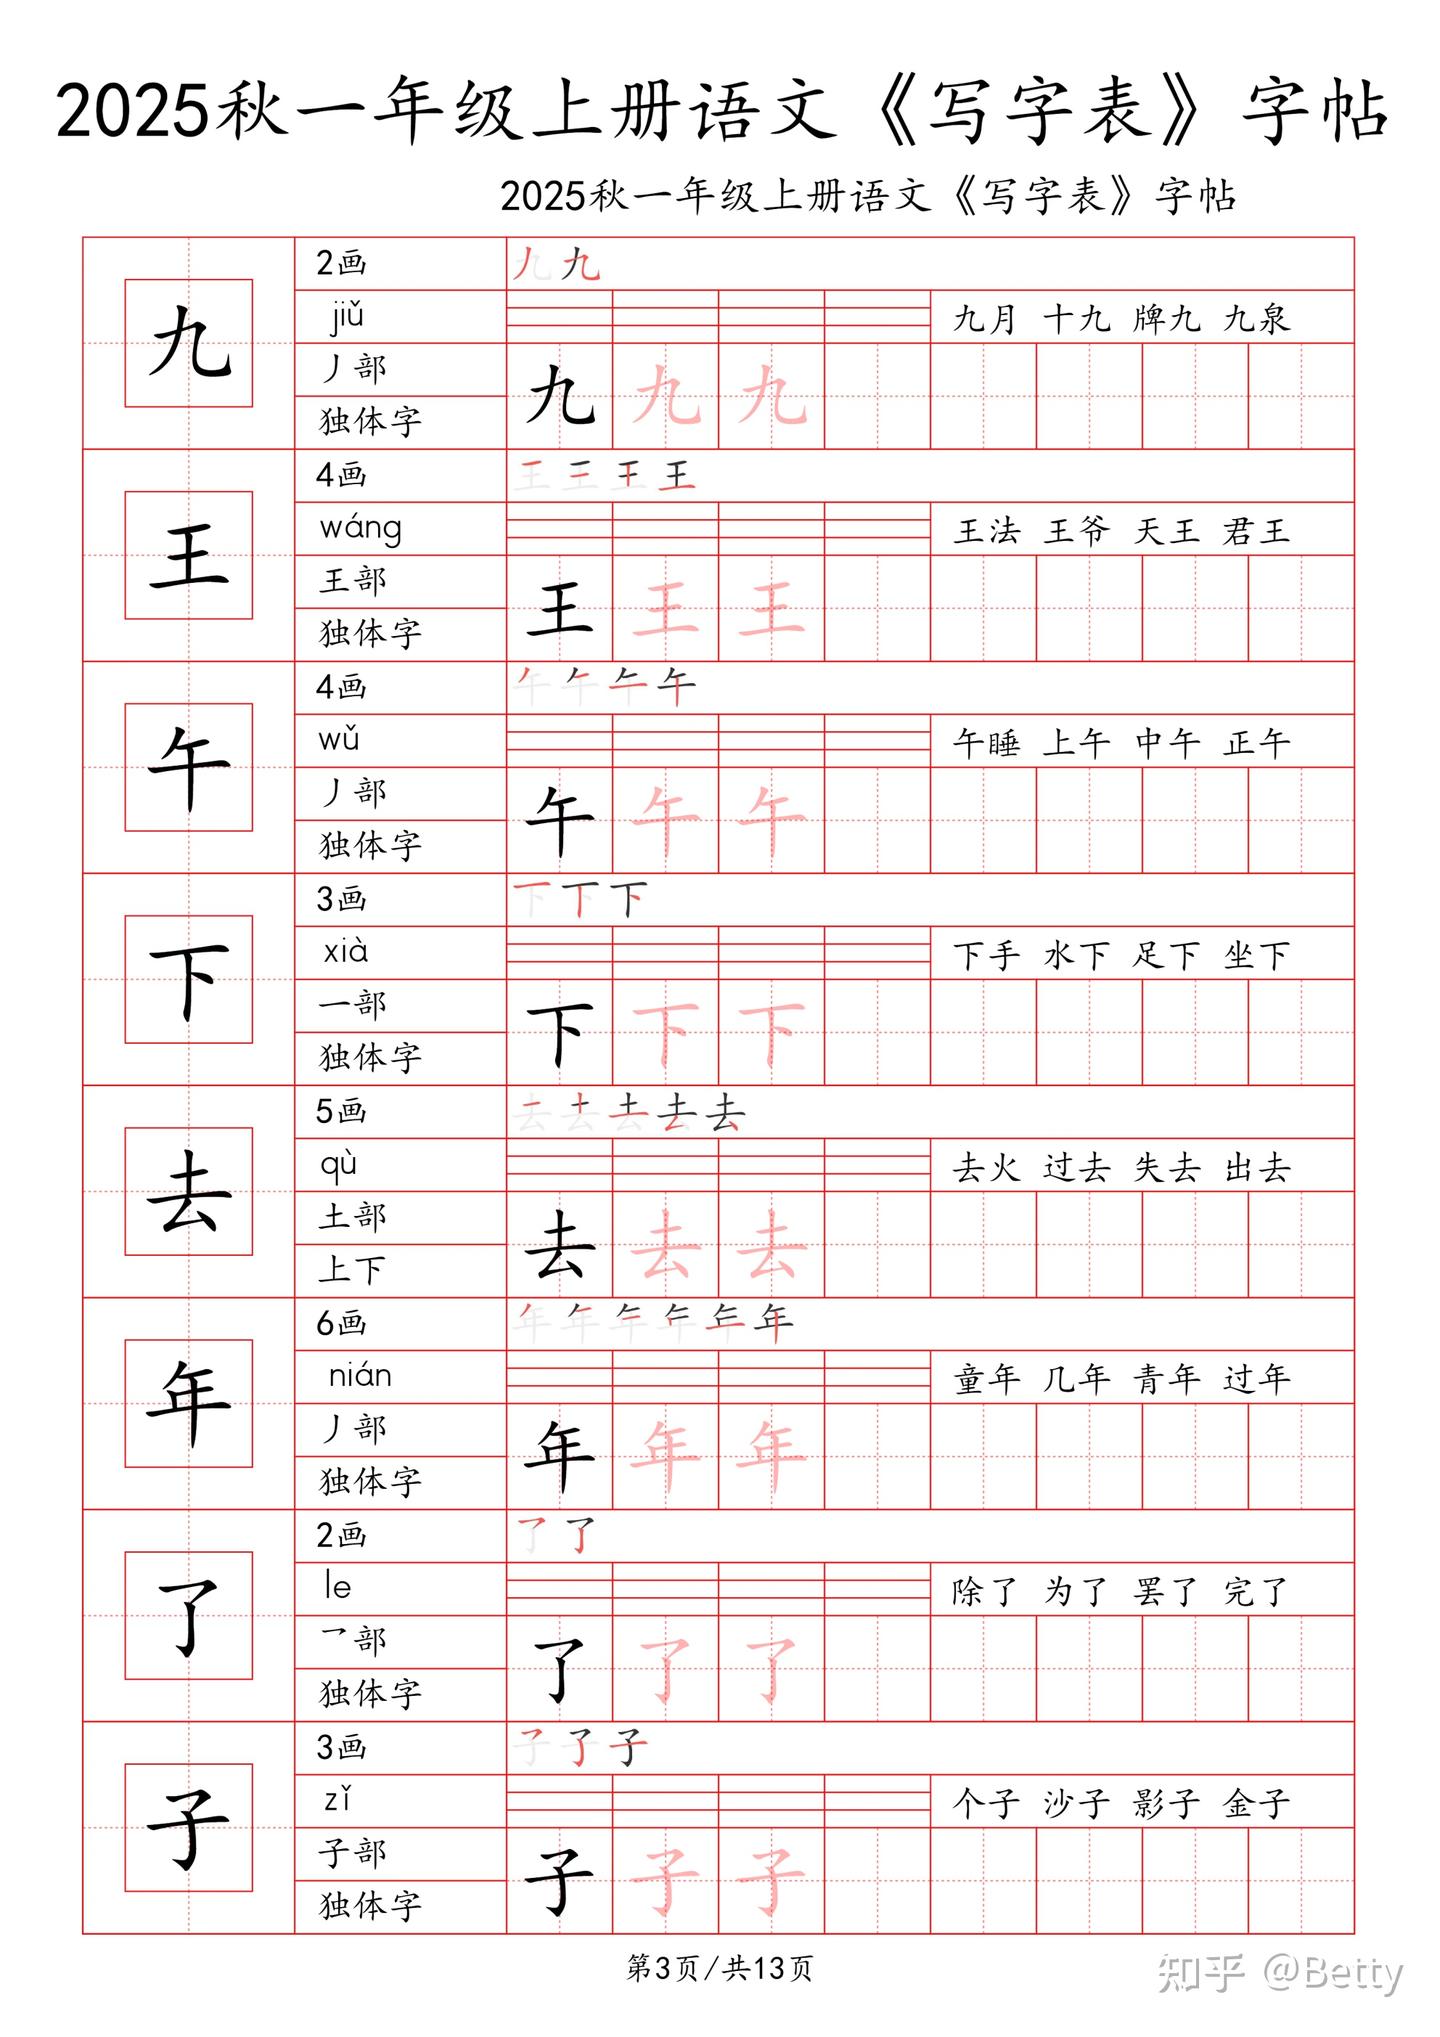 2025秋一年级上册语文《写字表》字帖
2025秋一年级上册语文《写字表》字帖
九
2画
九 九
jiǔ
九月 十九 牌九 九泉
丿部
九 九 九
独体字
王
4画
王 王 王 王
wáng
王法 王爷 天王 君王
王部
王 王 王
独体字
午
4画
午 午 午 午
wǔ
午睡 上午 中午 正午
丿部
午 午 午
独体字
下
3画
下 下 下
xià
下手 水下 足下 坐下
一部
下 下 下
独体字
去
5画
去 去 去 去 去
qù
去火 过去 失去 出去
土部
去 去 去
上下
年
6画
年 年 年 年 年 年
nián
童年 几年 青年 过年
丿部
年 年 年
独体字
了
2画
了 了
le
除了 为了 罢了 完了
乛部
了 了 了
独体字
子
3画
子 子 子
zǐ
个子 沙子 影子 金子
子部
子 子 子
独体字
第3页/共13页
知乎 @Betty